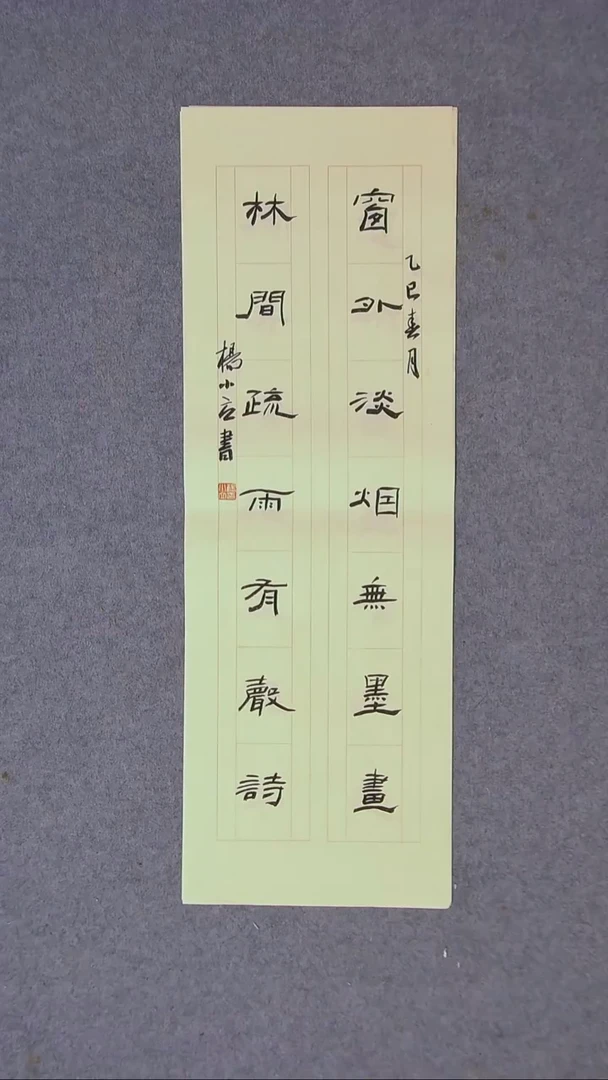 窗外淡烟無墨畫
乙巳春月
林間疏雨有聲詩
楊小立書